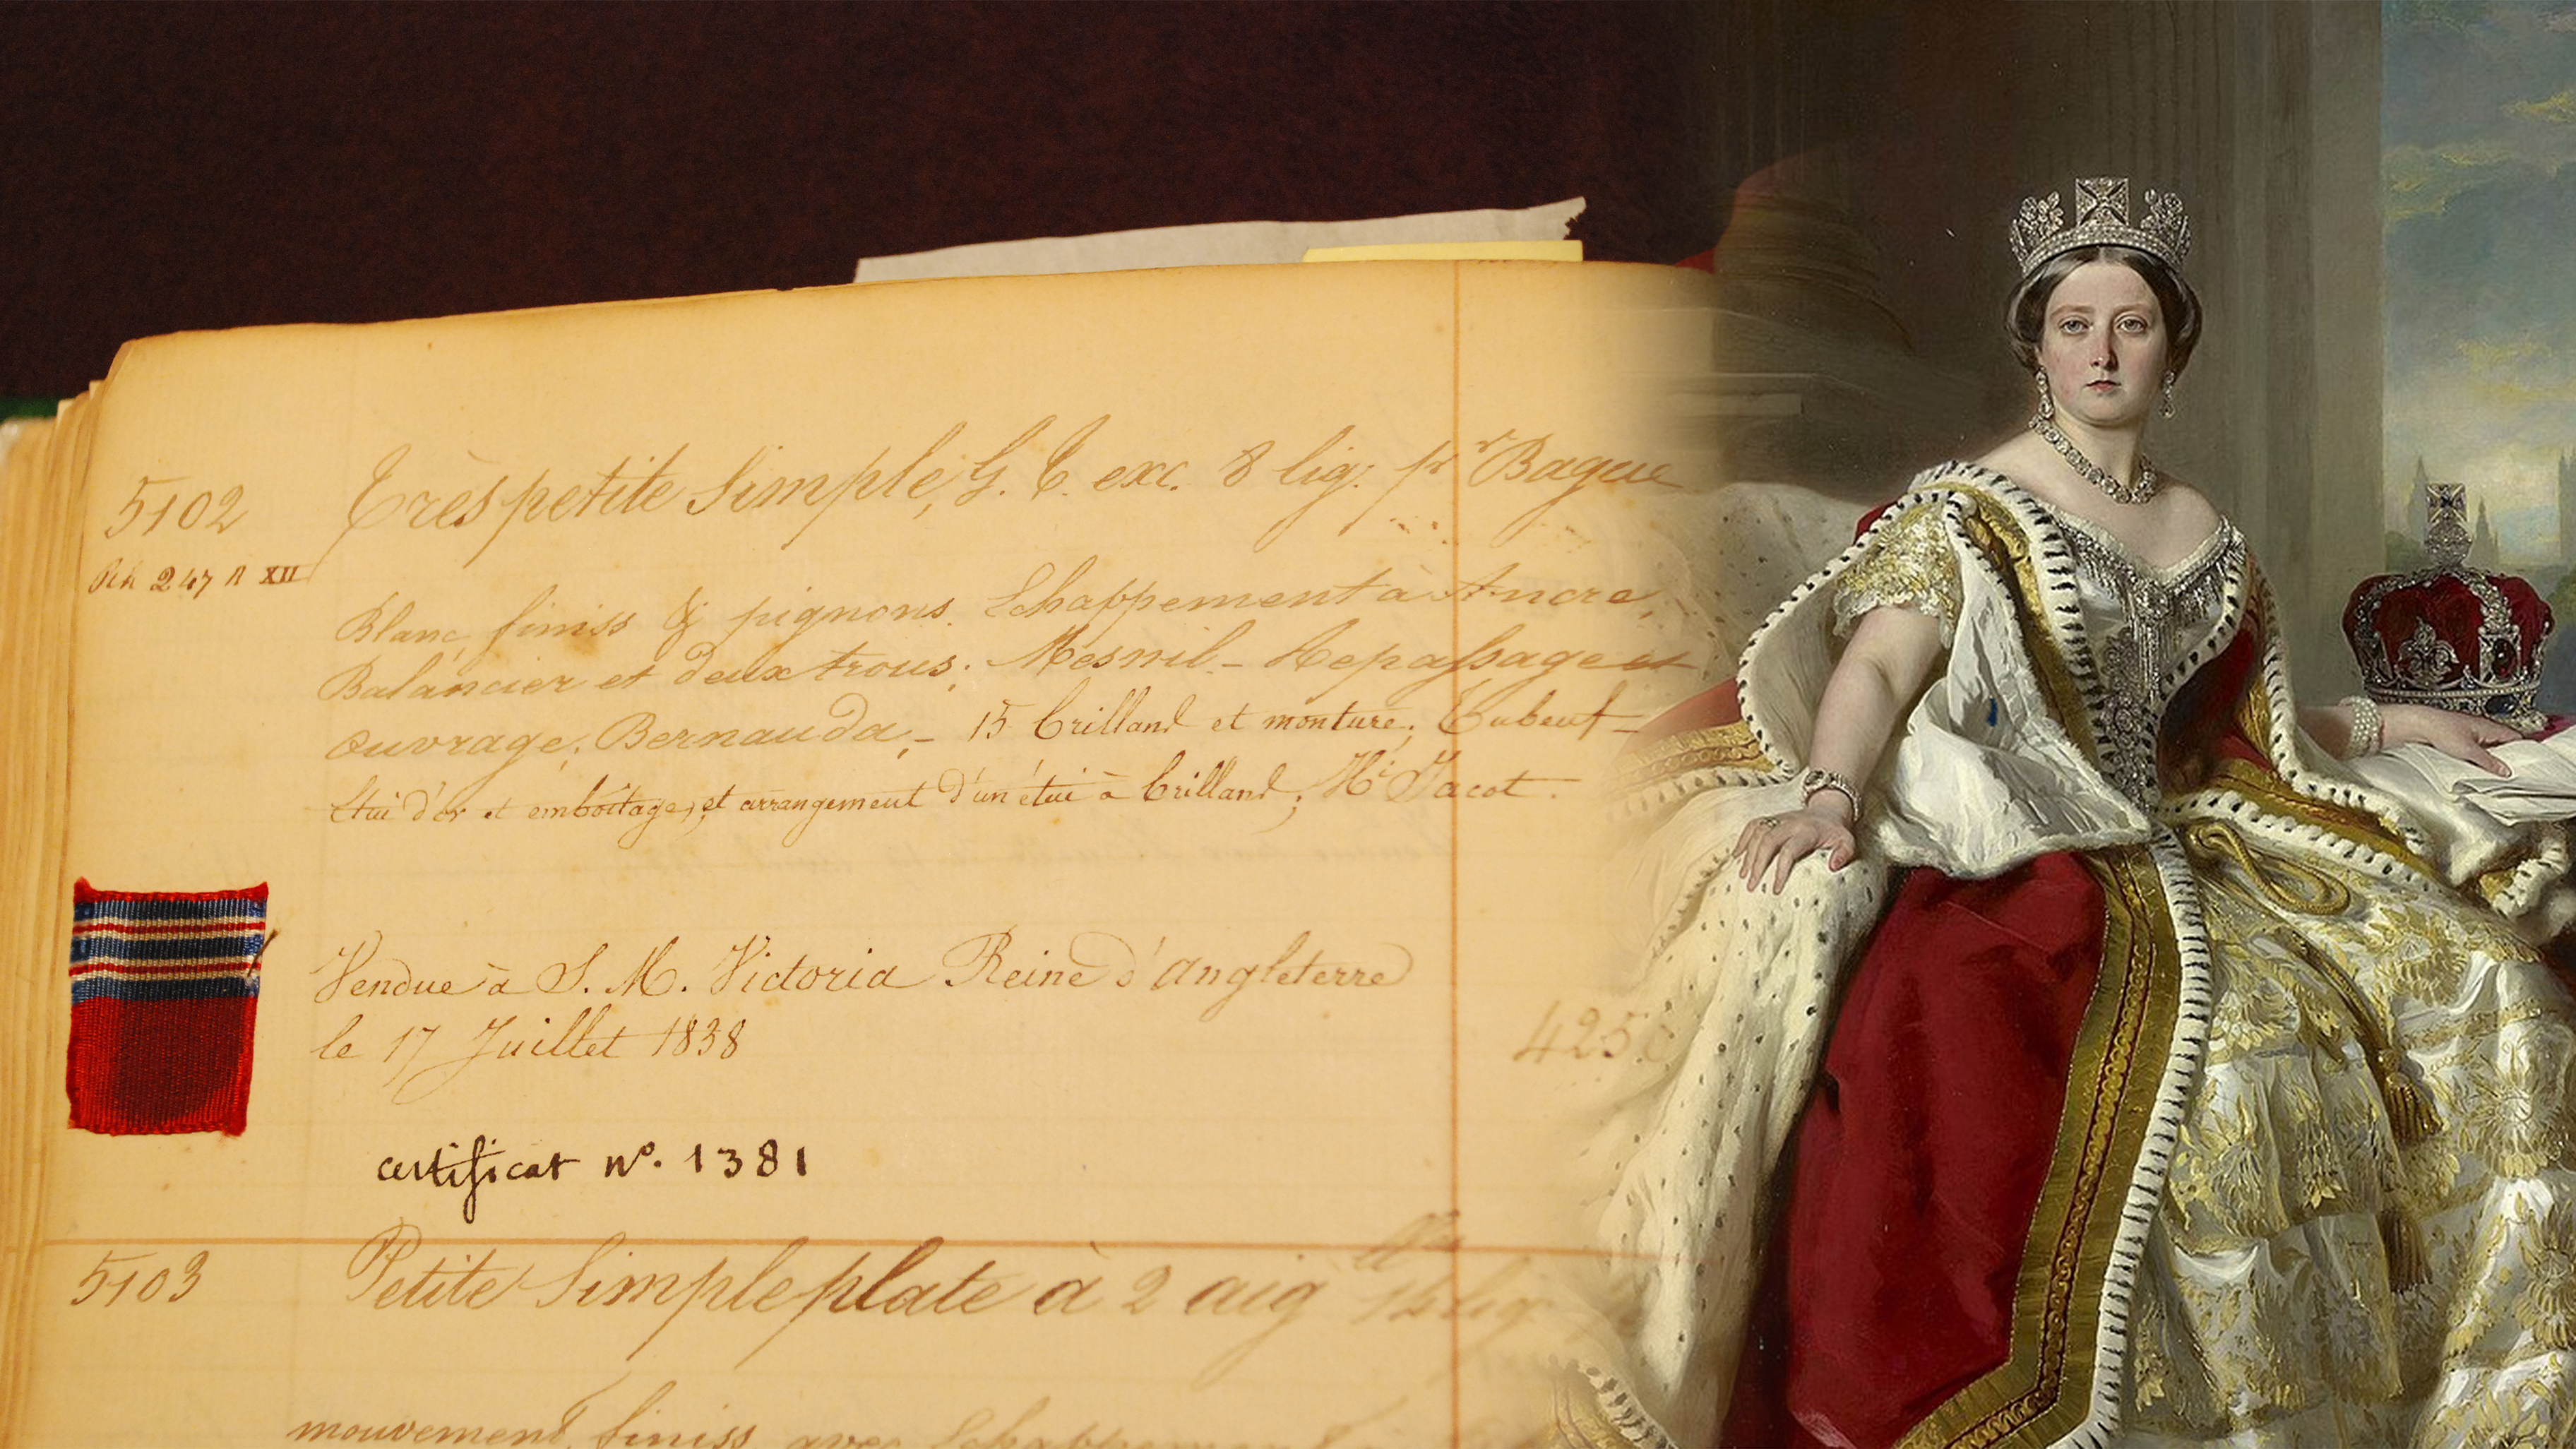 5102 Très petite Simple, G. C. exc. 8 lig. pr Bague
247 R XII
Blanc finiss & pignons. Echappement à Ancre,
Balancier et deux trous; Mesnil – Repassage et
ouvrage; Bernauda, – 15 brilland et monture;
Etui d'or et emboîtage, et arrangement d'un étui à brilland; Hi Jacot.
Vendue à S. M. Victoria Reine d'Angleterre
le 17 Juillet 1838
425
certificat no. 1381
5103 Petite Simple plate à 2 aig lles
mouvement finiss avec Echappement